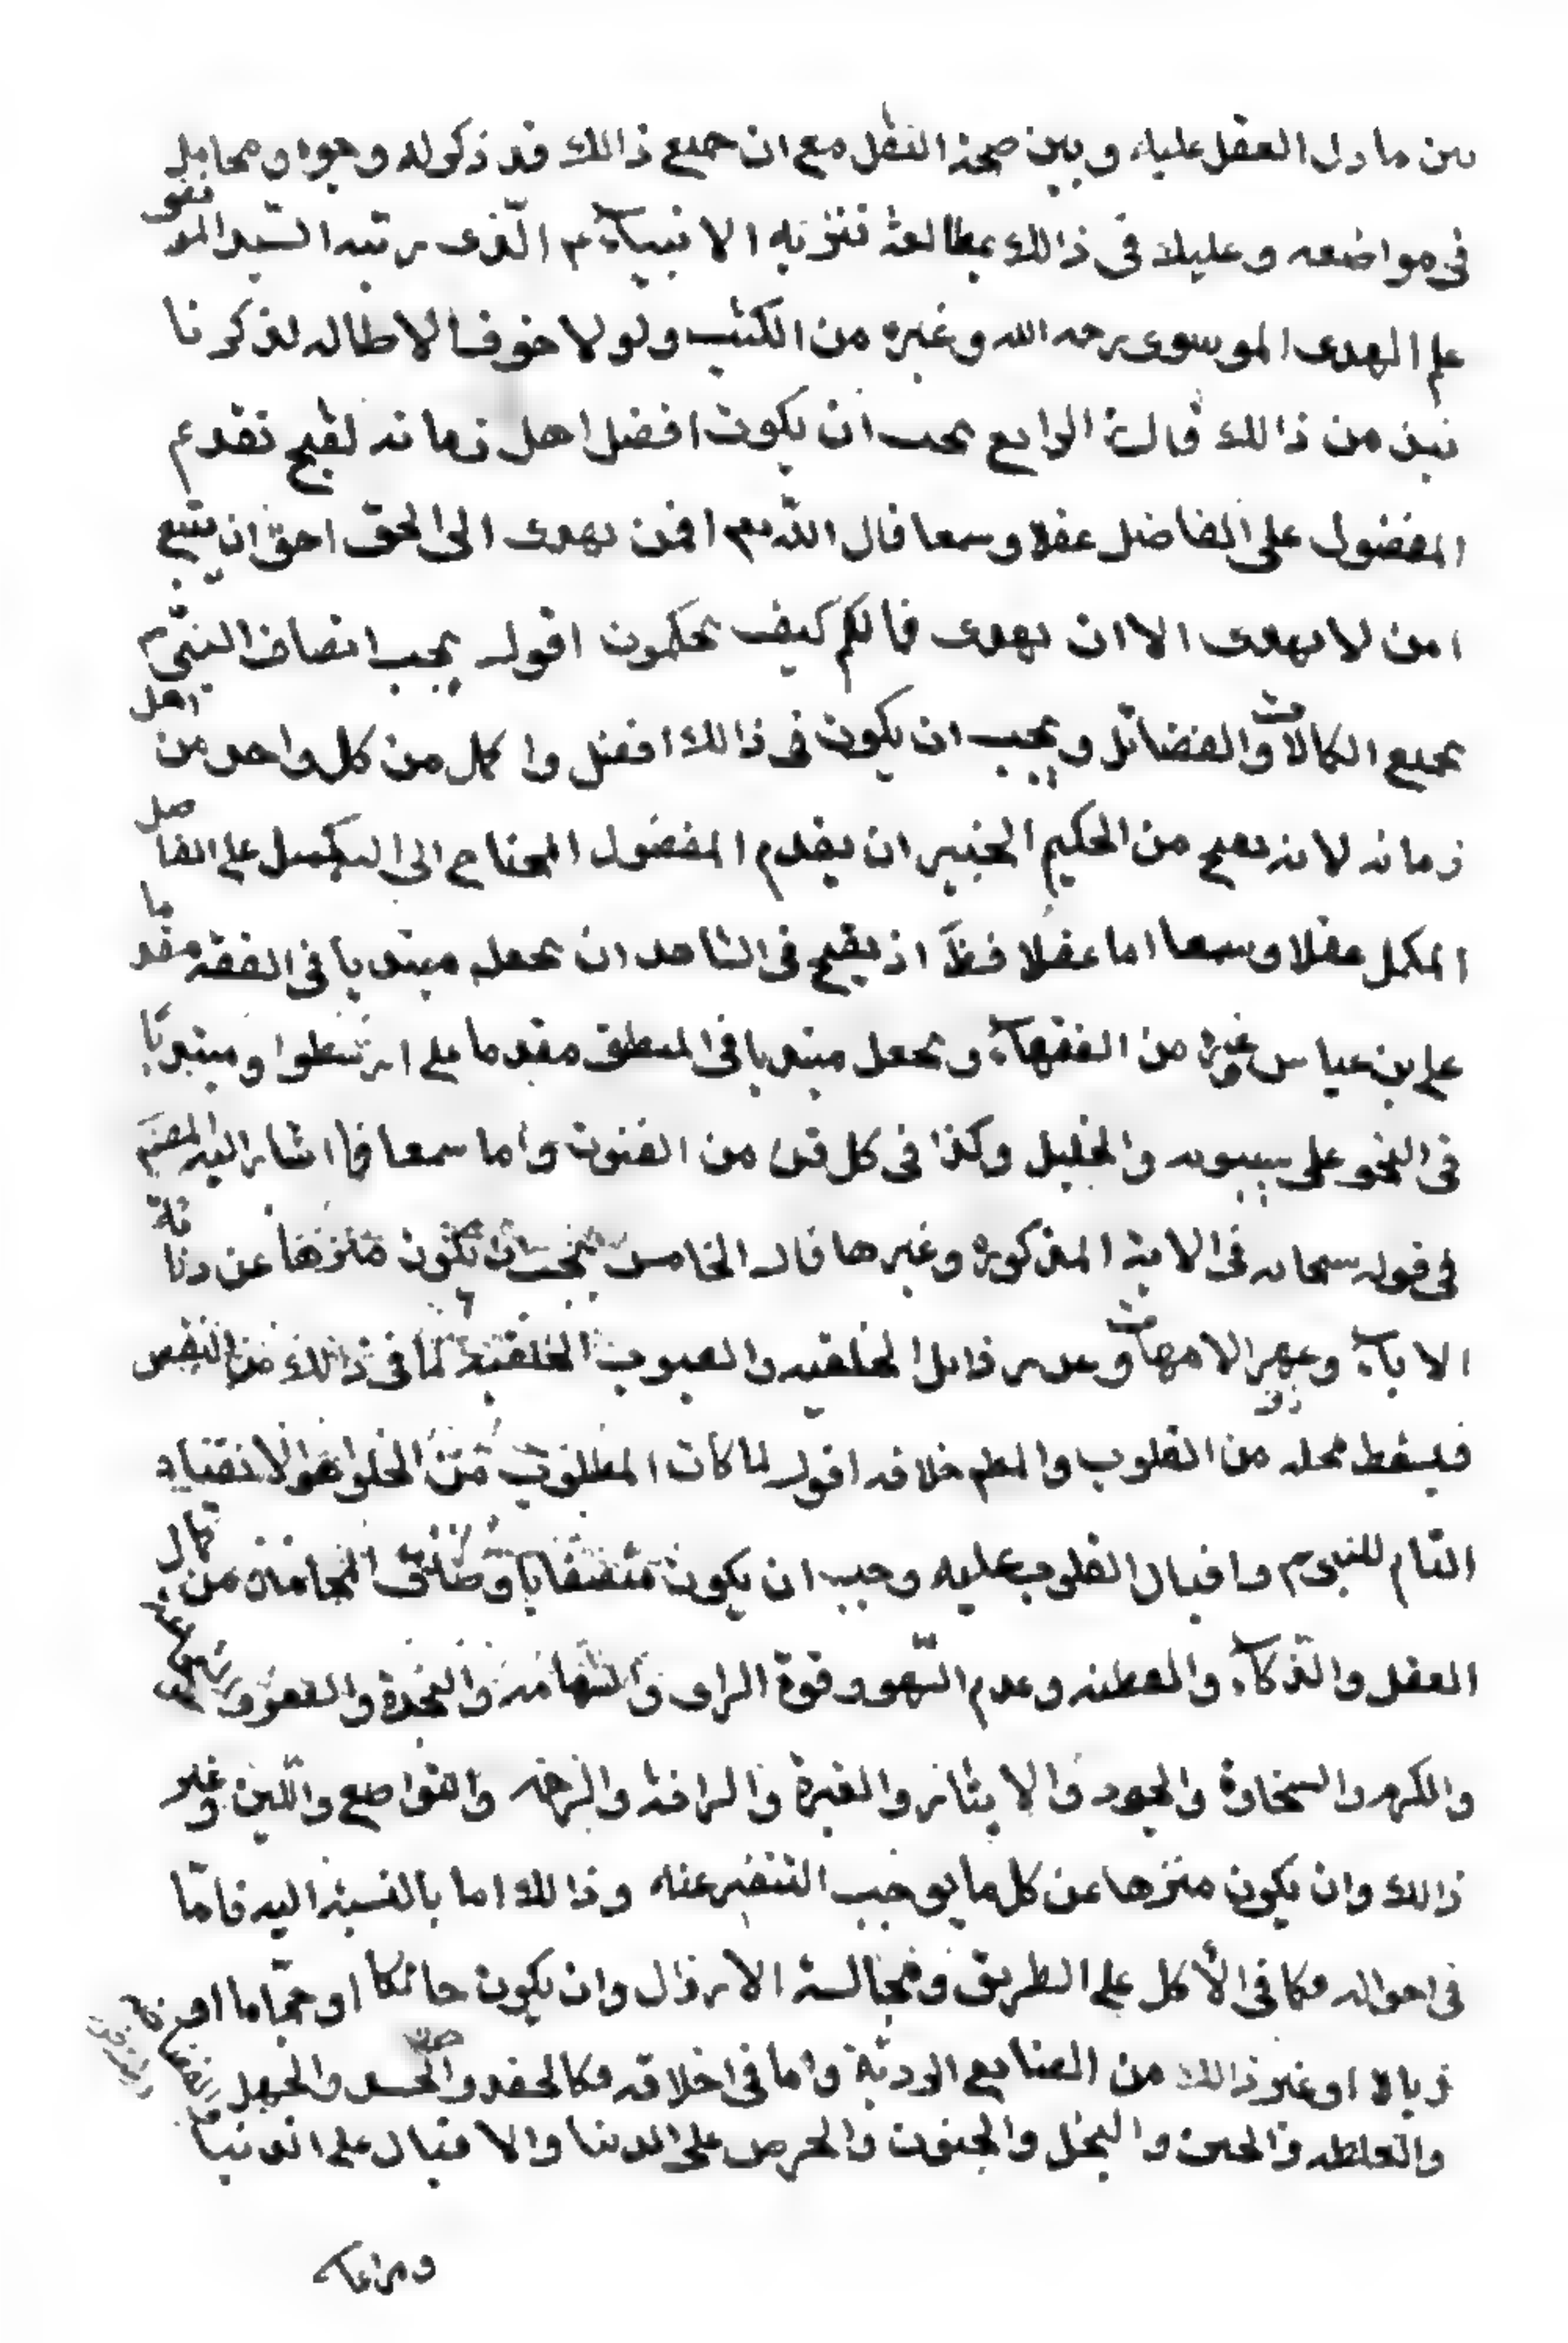 بين ما دل العقل عليه وبين صحة النقل مع ان جميع ذالك قد ذكر له وجوه ومحامل
فى مواضعه وعليك فى ذالك بمطالعة تنزيه الانبيآء م الّذى رتبه السّيد المرتضى
علم الهدى الموسوى رحمه الله وغيره من الكتب ولو لا خوف الاطاله لذكرنا
نبذ من ذالك قال الرابع يجب ان يكون افضل اهل زمانه لقبح تقدم
المفضول على الفاضل عقلا وسمعا قال اللّه تعم افمن يهدى الى الحق احق ان يتبع
امن لا يهدى الا ان يهدى فما لكم كيف تحكمون اقول يجب اتصاف النبىّ م
بجميع الكمالات والفضائل ويجب ان يكون فى ذالك افضل واكمل من كل واحد من اهل
زمانه لانه يقبح من الحكيم الخبير ان يقدم المفضول المحتاج الى التكميل على الفاضل
المكمل عقلا وسمعا اما عقلا فظّ اذ يقبح فى الشاهد ان يجعل مبتديا فى الفقه مقدما
على بن عباس وغيره من الفقهآء ويجعل مبتديا فى المنطق مقدما على ارسطوا ومبتديّا
فى النحو على سيبويه والخليل وكذا فى كل فن من الفنون واما سمعا فما اشار اليه المصنّم
فى قوله سبحانه فى الاية المذكوره وغيرها قال الخامس يجب ان يكون منزها عن دنائة
الابآء وعهر الامهات وعن رذايل الخلقيه والعيوب الخلقية لما فى ذالك من النقص
فيسقط محله من القلوب والمطم خلافه اقول لما كان المطلوب من الخلق هو الانقياد
التام للنبى م واقبال القلوب عليه وجب ان يكون متصفا باوصاف المحامد من كمال
العقل والذكآء والفطنه وعدم السّهو وقوة الراى والشهامه والنجدة والعفو والشجاعة
والكرم والسخاوة والجود والايثار والغيرة والرافة والرحمه والتواضع واللّين وغير
ذالك وان يكون منزها عن كل ما يوجب التنفير عنه وذالك اما بالنسبة اليه فامّا
فى احواله فكما فى الأكل على الطريق ومجالسة الارذال وان يكون حائكا او حجّاما او
زبالا او غير ذالك من الصنايع الرديّة واما فى اخلاقه فكالحقد والحسد والجهل
والغلظه والجبن والبخل والجنون والحرص على الدنيا والاقبال على الدنيا
ومراعاة